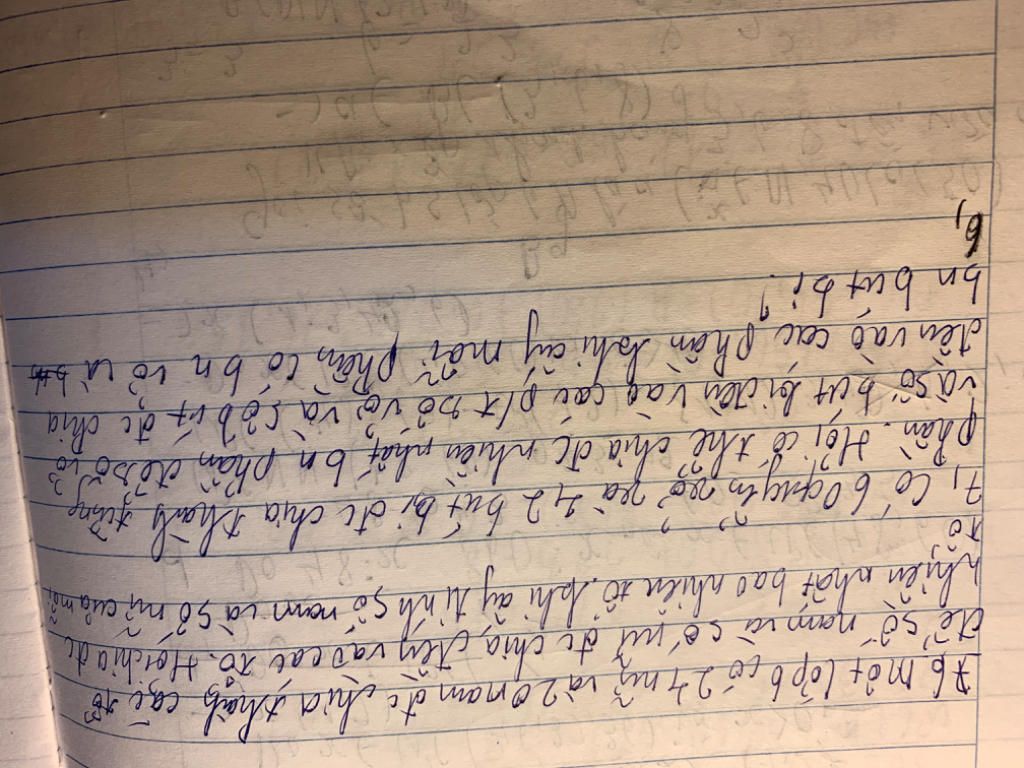 76 một lớp 6 có 24 nữ và 20 nam đc chia thành các tổ
để số nam và số nữ đc chia đều vào các tổ. Hỏi chia đc
nhiên nhất bao nhiên tổ. khi ấy tính số nam và số nữ của mỗi
tổ
7, Có 60 quyển vở và 42 bút bi đc chia thành từng
phần. Hỏi có thể chia đc nhiên nhất bn phần để số vở
và số bút bi đều vào các số vở và số bút đc chia
đều vào các phần khi ấy mỗi phần có bn vở và
bn bút bi?
6,